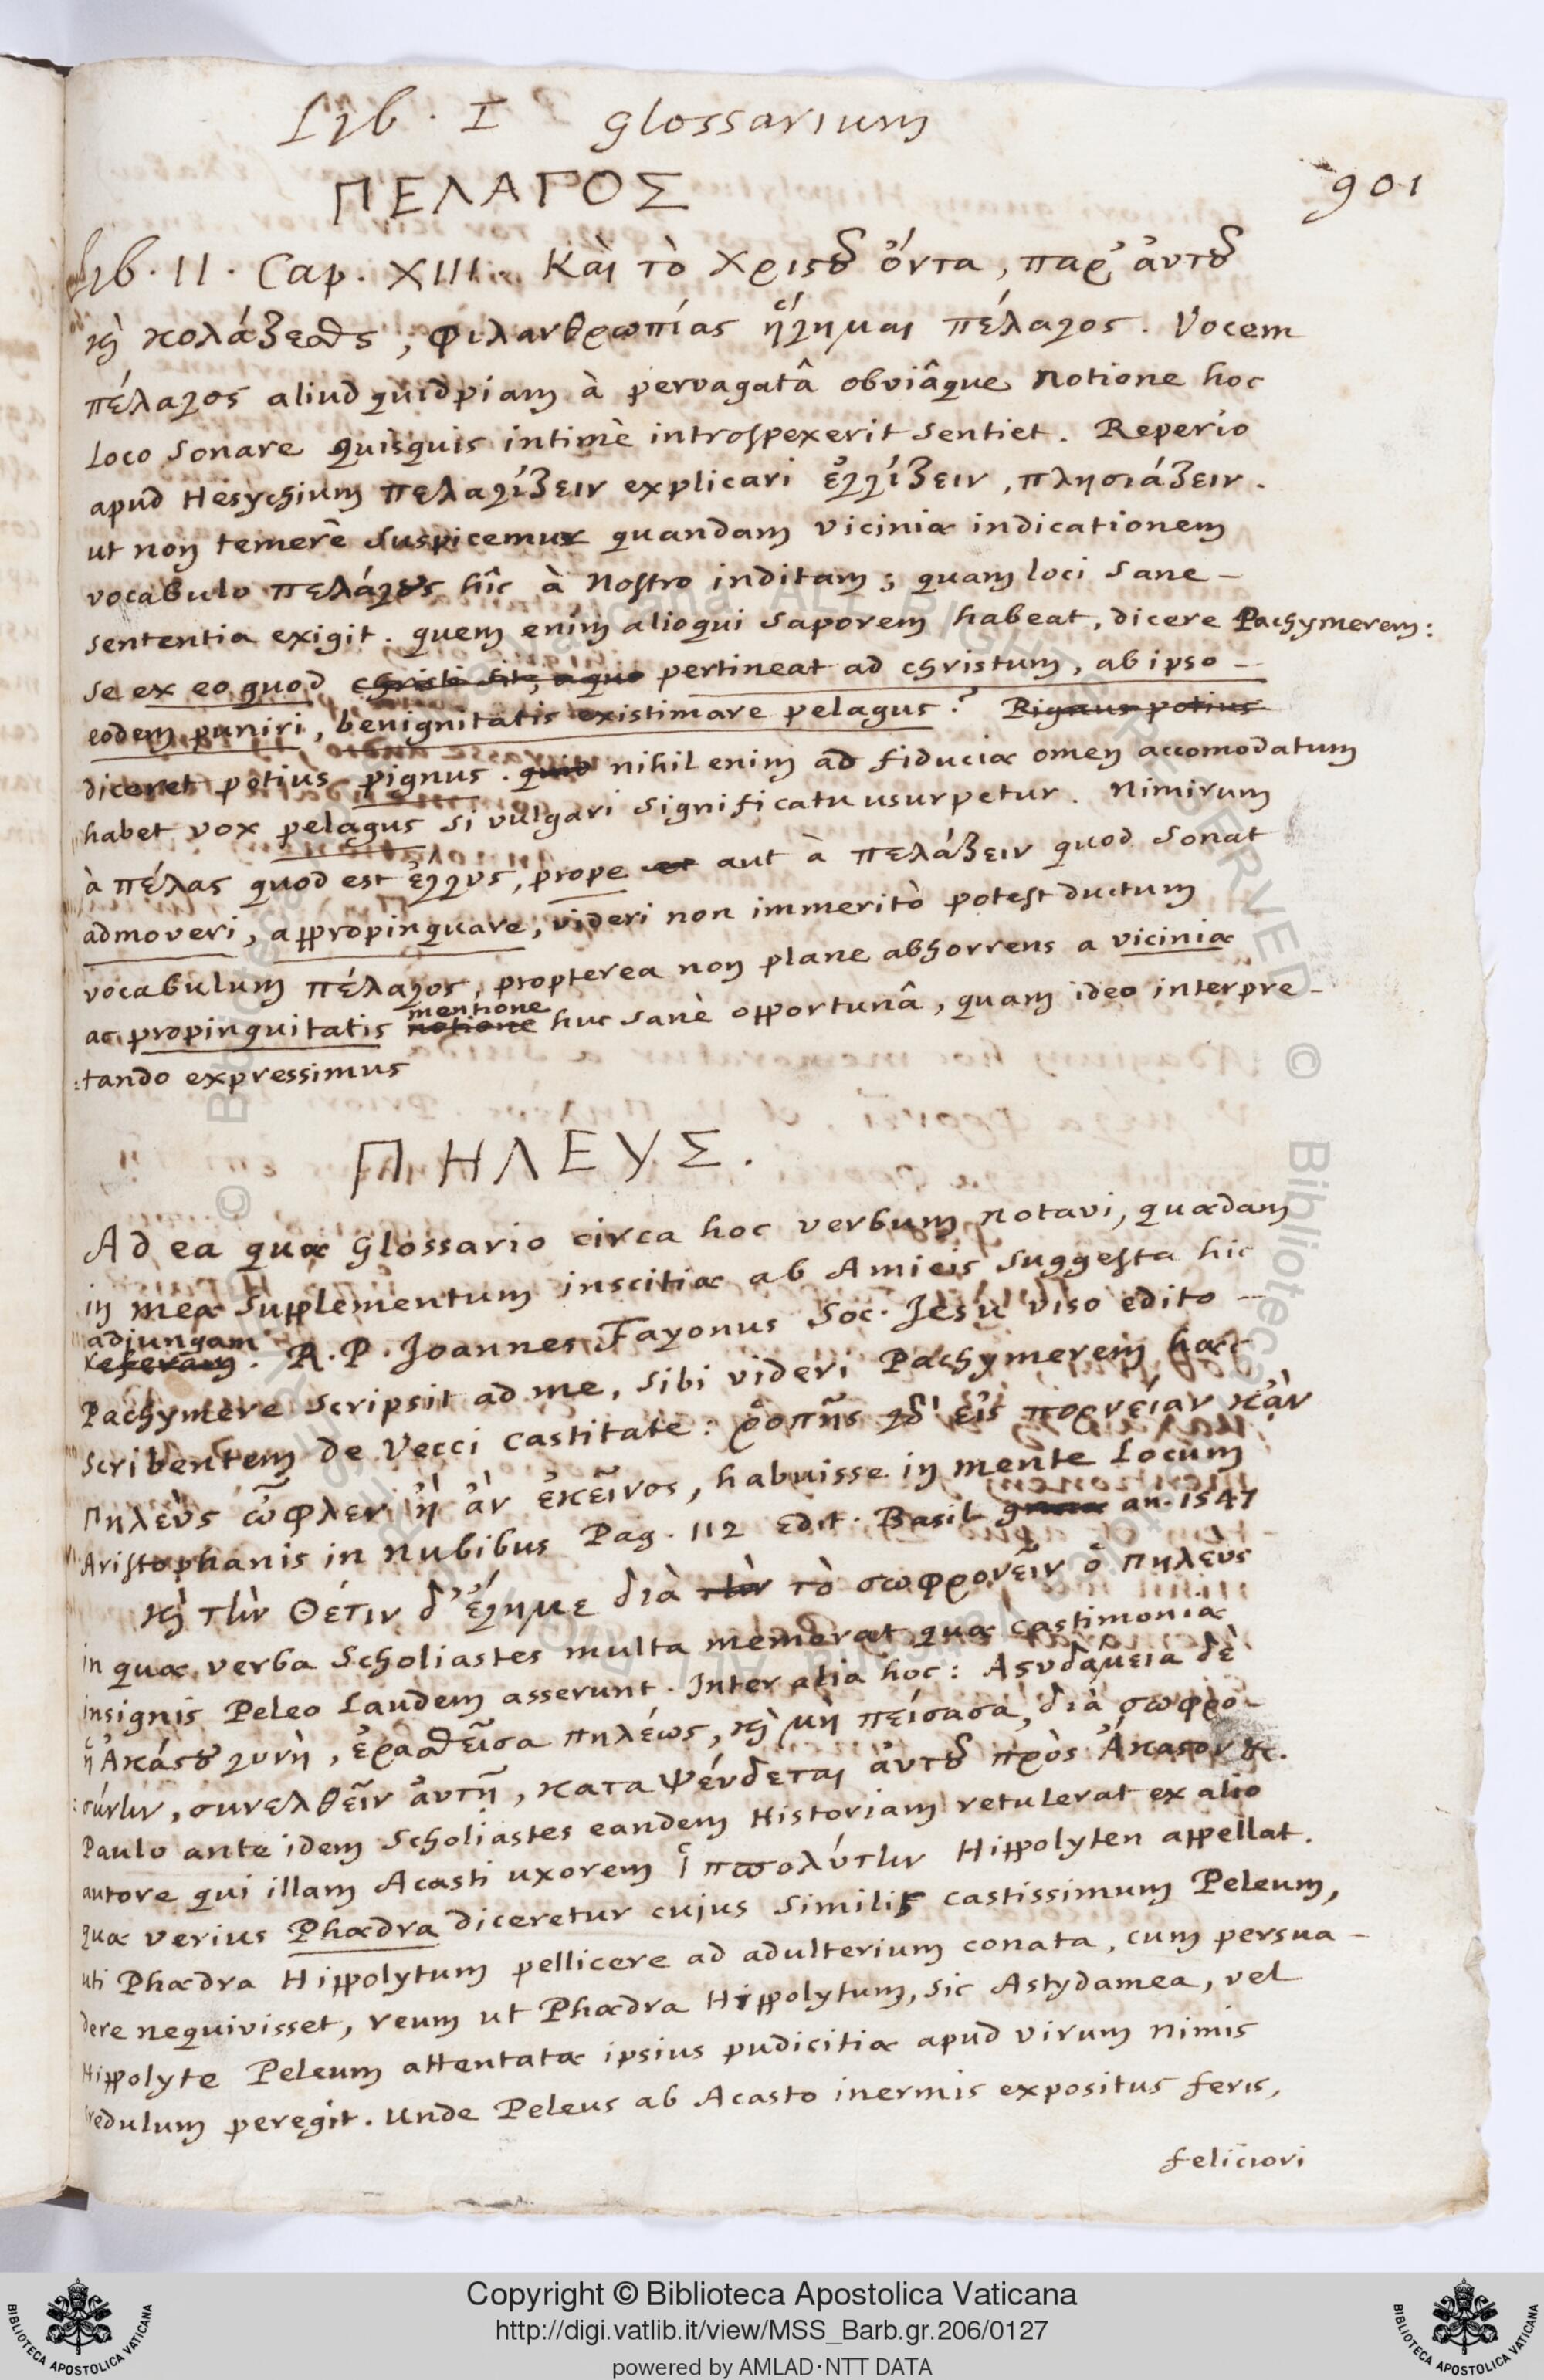 Lib. I glossarium
901
ΠΕΛΑΓΟΣ
Lib. II. Cap. XIII. Καὶ τὸ Χριστοῦ ὄντα, παρ' ἀυτοῦ
καὶ κολάζεσθαι, φιλανθρωπίας ἥγημαι πέλαγος. Vocem
πέλαγος aliud quidpiam à pervagatâ obviâque notione hoc
loco sonare quisquis intimè introspexerit sentiet. Reperio
apud Hesychium πελαγίζειν explicari ἐγγίζειν, πλησιάζειν.
ut non temerè suspicemur quandam viciniæ indicationem
vocabulo πελάγους hîc à Nostro inditam; quam loci sane-
sententia exigit. quem enim alioqui saporem habeat, dicere Pachymerem:
se ex eo quod christi sit, a quo pertineat ad christum, ab ipso-
eodem puniri, benignitatis existimare pelagus? potius
diceret potius pignus. quid nihil enim ad fiduciæ omen accomodatum
habet vox pelagus si vulgari significatu usurpetur. Nimirum
à πέλας quod est ἐγγὺς, prope et aut à πελάζειν quod sonat
admoveri, appropinquare, videri non immeritò potest ductum
vocabulum πέλαγος, propterea non plane abhorrens a viciniæ
ac propinquitatis notione mentione huc sanè opportunâ, quam ideo interpre-
:tando expressimus
ΠΗΛΕΥΣ.
Ad ea quæ Glossario circa hoc verbum notavi, quædam
in meæ supplementum inscitiæ ab Amicis suggesta hic
adjungam
referam. R. P. Joannes Fayonus Soc. Jesu viso edito-
Pachymere scripsit ad me, sibi videri Pachymerem hæc-
scribentem de Vecci castitate: ῥοπῆς γδ' εἰς πορνείαν κἂν
Πηλεὺς ὦφλεν ἢ ἂν ἐκεῖνος, habuisse in mente locum
Aristophanis in Nubibus Pag. 112 edit. Basil an. 1547
καὶ τὴν Θέτιν δ' ἔγημε διὰ τὴν τὸ σωφρονεῖν ὁ Πηλεὺς
in quæ verba Scholiastes multa memorat quæ castimoniæ
insignis Peleo laudem asserunt. Inter alia hoc: Αστυδάμεια δὲ
ἡ Ἀκάστου γυνὴ, ἐρασθεῖσα πηλέως, καὶ μὴ πείσασα, διὰ σωφρο-
:σύνην, συνελθεῖν ἀυτῇ, καταψέυδεται ἀυτοῦ πρὸς Ἄκαστον &c.
Paulo ante idem Scholiastes eandem Historiam retulerat ex alio
autore qui illam Acasti uxorem Ἱππολύτην Hippolyten appellat.
quæ verius Phædra diceretur cujus similis castissimum Peleum,
uti Phædra Hippolytum pellicere ad adulterium conata, cum persua-
dere nequivisset, reum ut Phædra Hippolytum, sic Astydamea, vel
Hippolyte Peleum attentatæ ipsius pudicitiæ apud virum nimis
credulum peregit. Unde Peleus ab Acasto inermis expositus feris,
feliciori
Copyright © Biblioteca Apostolica Vaticana
http://digi.vatlib.it/view/MSS_Barb.gr.206/0127
powered by AMLAD·NTT DATA
BIBLIOTECA APOSTOLICA VATICANA
BIBLIOTECA APOSTOLICA VATICANA